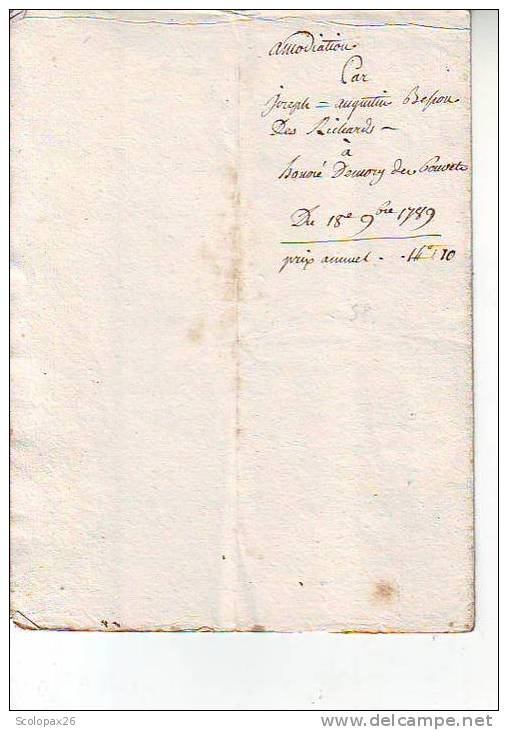 amodiation
Par
joseph = augustin Besson
Des Richards -
à
honoré Demory des
Du 18e 9bre 1789
prix annuel - -
Scolopax26
delcampe.net